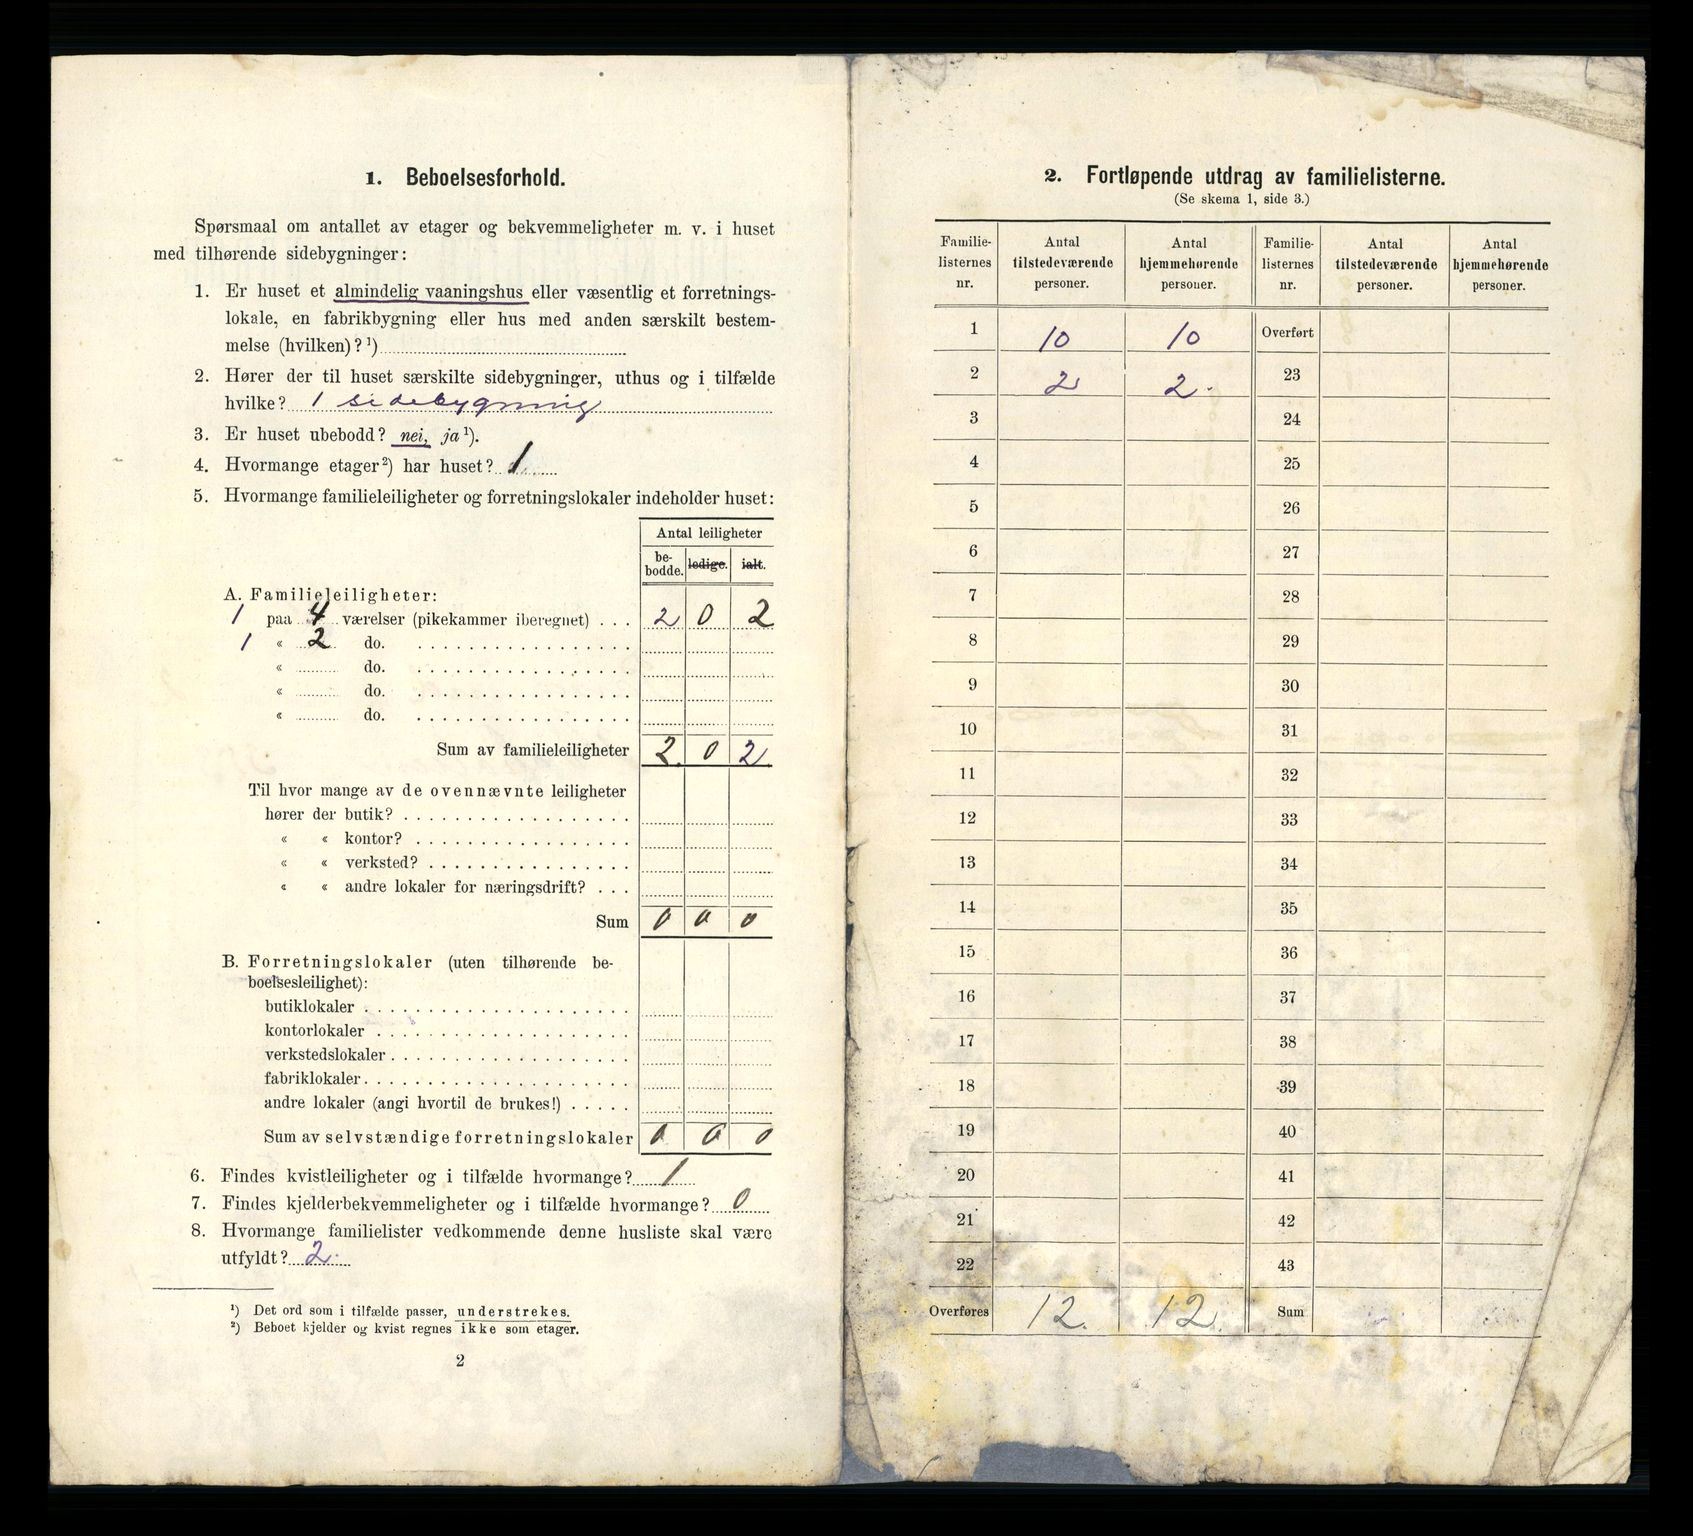 1. Beboelsesforhold.
Spørsmaal om antallet av etager og bekvemmeligheter m. v. i huset
med tilhørende sidebygninger:
1. Er huset et almindelig vaaningshus eller væsentlig et forretnings-
lokale, en fabrikbygning eller hus med anden særskilt bestem-
melse (hvilken)? ¹)
2. Hører der til huset særskilte sidebygninger, uthus og i tilfælde
hvilke? 1 sidebygning
3. Er huset ubebodd? nei, ja ¹).
4. Hvormange etager ²) har huset? 1
5. Hvormange familieleiligheter og forretningslokaler indeholder huset:
Antal leiligheter
be-
bodde. ledige. ialt.
A. Familieleiligheter:
1 paa 4 værelser (pikekammer iberegnet) . . . 2 0 2
1 « 2 do.
« do.
« do.
« do.
Sum av familieleiligheter 2 0 2
Til hvor mange av de ovennævnte leiligheter
hører der butik?
« « kontor?
« « verksted?
« « andre lokaler for næringsdrift? . . .
Sum 0 0 0
B. Forretningslokaler (uten tilhørende be-
boelsesleilighet):
butiklokaler
kontorlokaler
verkstedslokaler
fabriklokaler
andre lokaler (angi hvortil de brukes!)
Sum av selvstændige forretningslokaler 0 0 0
6. Findes kvistleiligheter og i tilfælde hvormange? 1
7. Findes kjelderbekvemmeligheter og i tilfælde hvormange? 0
8. Hvormange familielister vedkommende denne husliste skal være
utfyldt? 2
¹) Det ord som i tilfælde passer, understrekes.
²) Beboet kjelder og kvist regnes ikke som etager.
2
2. Fortløpende utdrag av familielisterne.
(Se skema 1, side 3.)
Familie-
listernes
nr. Antal
tilstedeværende
personer. Antal
hjemmehørende
personer. Familie-
listernes
nr. Antal
tilstedeværende
personer. Antal
hjemmehørende
personer.
1 10 10 Overført
2 2 2 23
3 24
4 25
5 26
6 27
7 28
8 29
9 30
10 31
11 32
12 33
13 34
14 35
15 36
16 37
17 38
18 39
19 40
20 41
21 42
22 43
Overføres 12. 12. Sum